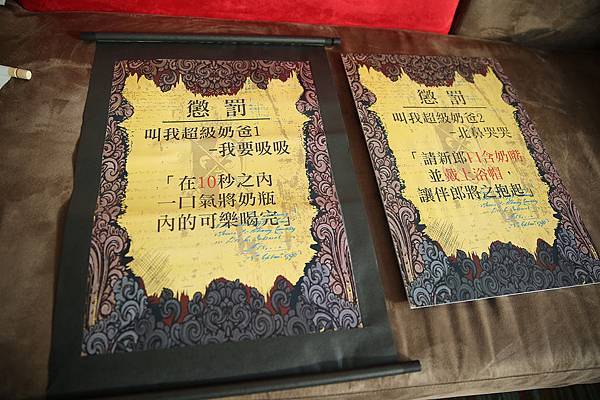 懲罰
叫我超級奶爸1
-我要吸吸
「在10秒之內
一口氣將奶瓶
內的可樂喝完」
懲罰
叫我超級奶爸2
-北鼻哭哭
「請新郎口含奶嘴
並戴上浴帽，
讓伴郎將之抱起」